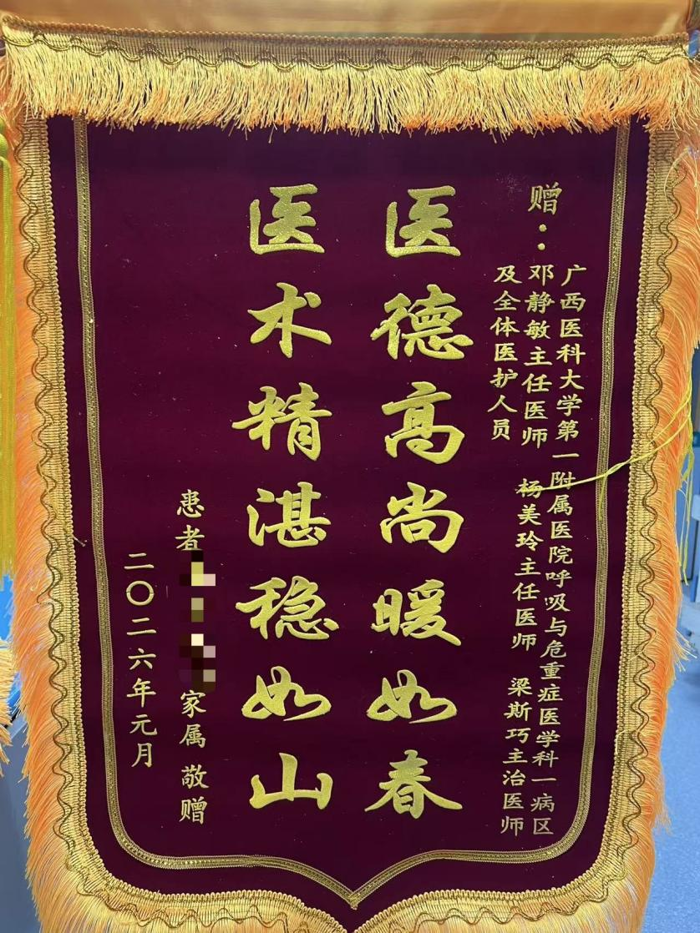 赠：
广西医科大学第一附属医院呼吸与危重症医学科一病区
邓静敏主任医师 杨美玲主任医师 梁斯巧主治医师
及全体医护人员
医德高尚暖如春
医术精湛稳如山
患者 家属 敬赠
二〇二六年元月